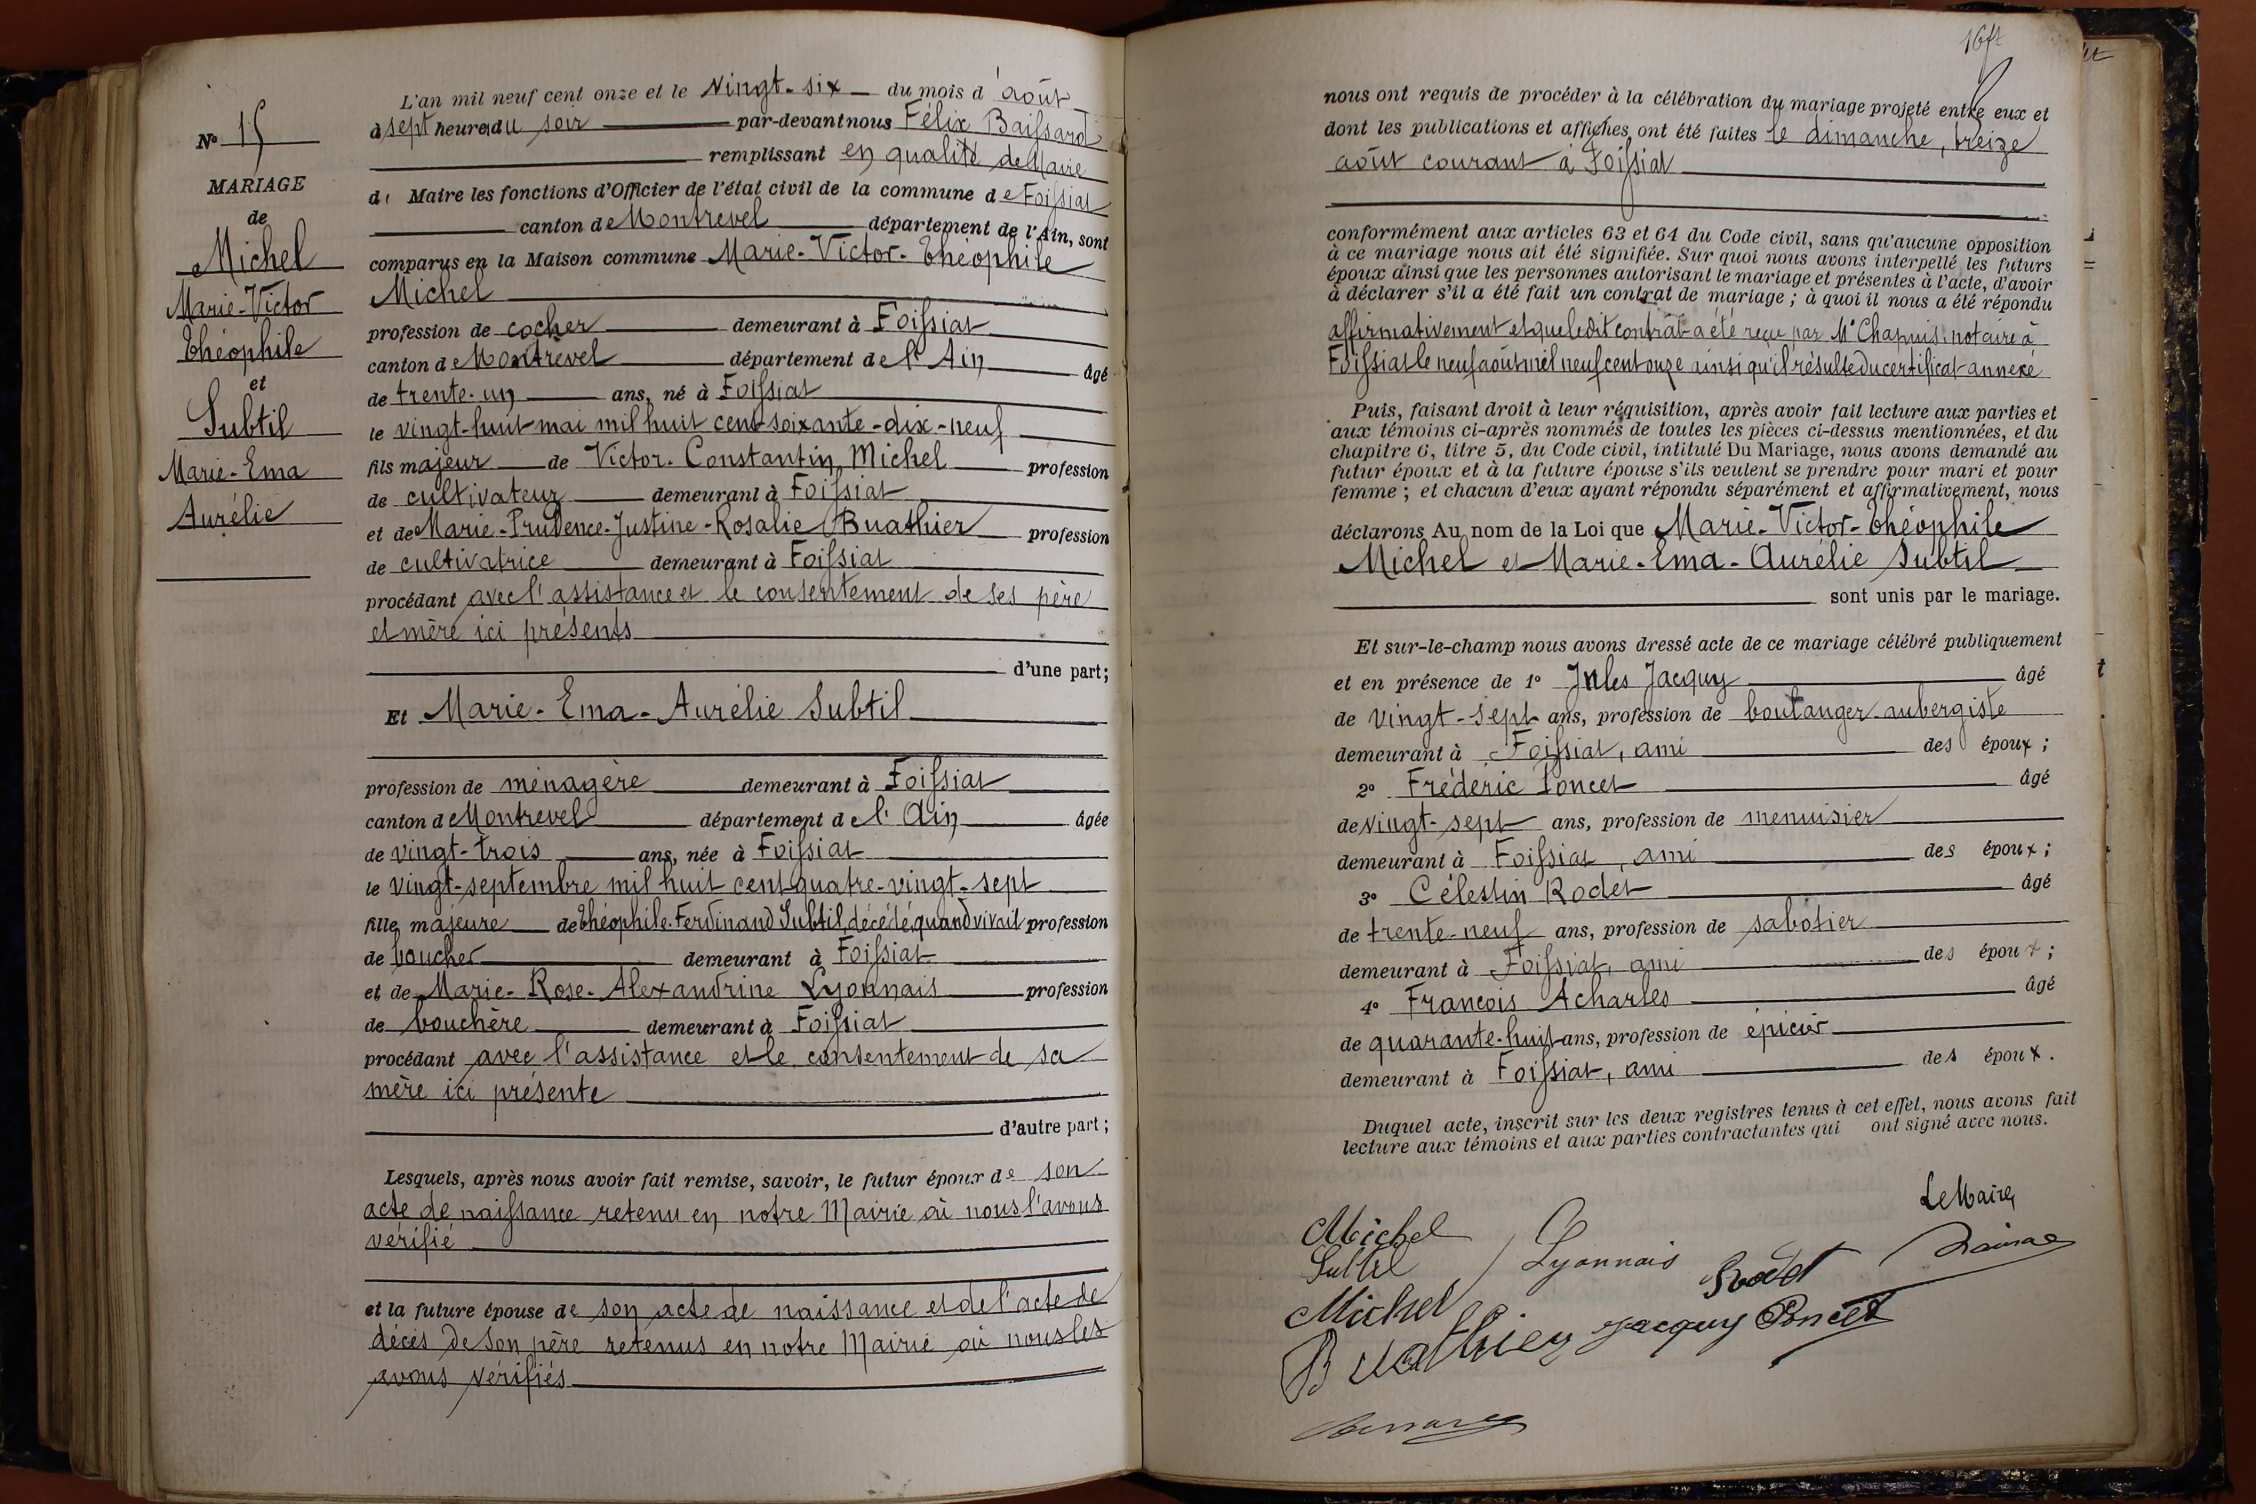 N° 15
MARIAGE
de
Michel
Marie-Victor
Théophile
et
Subtil
Marie-Ema
Aurélie
L'an mil neuf cent onze et le vingt-six du mois d'août
à sept heures du soir par-devant nous Félix Baissard
remplissant en qualité de Maire
d Maire les fonctions d'Officier de l'état civil de la commune de Foissiat
canton de Montrevel département de l'Ain, sont
comparus en la Maison commune Marie-Victor-Théophile
Michel
profession de cocher demeurant à Foissiat
canton de Montrevel département de l'Ain âgé
de trente-un ans, né à Foissiat
le vingt-huit mai mil huit cent soixante-dix-neuf
fils majeur de Victor-Constantin Michel profession
de cultivateur demeurant à Foissiat
et de Marie-Prudence-Justine-Rosalie Buathier profession
de cultivatrice demeurant à Foissiat
procédant avec l'assistance et le consentement de ses père
et mère ici présents
d'une part;
Et Marie-Ema-Aurélie Subtil
profession de ménagère demeurant à Foissiat
canton de Montrevel département de l'Ain âgée
de vingt-trois ans, née à Foissiat
le vingt-septembre mil huit cent quatre-vingt-sept
fille majeure de Théophile-Ferdinand Subtil, décédé, quand vivait profession
de boucher demeurant à Foissiat
et de Marie-Rose-Alexandrine Lyonnais profession
de bouchère demeurant à Foissiat
procédant avec l'assistance et le consentement de sa
mère ici présente
d'autre part;
Lesquels, après nous avoir fait remise, savoir, le futur époux de son
acte de naissance retenu en notre Mairie où nous l'avons
vérifié
et la future épouse de son acte de naissance et de l'acte de
décès de son père retenus en notre Mairie où nous les
avons vérifiés
nous ont requis de procéder à la célébration du mariage projeté entre eux et
dont les publications et affiches ont été faites le dimanche, treize
août courant à Foissiat
conformément aux articles 63 et 64 du Code civil, sans qu'aucune opposition
à ce mariage nous ait été signifiée. Sur quoi nous avons interpellé les futurs
époux ainsi que les personnes autorisant le mariage et présentes à l'acte, d'avoir
à déclarer s'il a été fait un contrat de mariage; à quoi il nous a été répondu
affirmativement et que ledit contrat a été reçu par Me Chapuis, notaire à
Foissiat le neuf août mil neuf cent onze ainsi qu'il résulte du certificat annexé
Puis, faisant droit à leur réquisition, après avoir fait lecture aux parties et
aux témoins ci-après nommés de toutes les pièces ci-dessus mentionnées, et du
chapitre 6, titre 5, du Code civil, intitulé Du Mariage, nous avons demandé au
futur époux et à la future épouse s'ils veulent se prendre pour mari et pour
femme; et chacun d'eux ayant répondu séparément et affirmativement, nous
déclarons Au nom de la Loi que Marie-Victor-Théophile
Michel et Marie-Ema-Aurélie Subtil
sont unis par le mariage.
Et sur-le-champ nous avons dressé acte de ce mariage célébré publiquement
et en présence de 1° Jules Jacquy âgé
de vingt-sept ans, profession de boulanger aubergiste
demeurant à Foissiat, ami des époux;
2° Frédéric Poncet âgé
de vingt-sept ans, profession de menuisier
demeurant à Foissiat, ami des époux;
3° Célestin Rodet âgé
de trente-neuf ans, profession de sabotier
demeurant à Foissiat, ami des époux;
4° François Acharles âgé
de quarante-huit ans, profession de épicier
demeurant à Foissiat, ami des époux.
Duquel acte, inscrit sur les deux registres tenus à cet effet, nous avons fait
lecture aux témoins et aux parties contractantes qui ont signé avec nous.
Le Maire,
Michel
Subtil
Lyonnais
Rodet
Michel
Buathier Jacquy Poncet